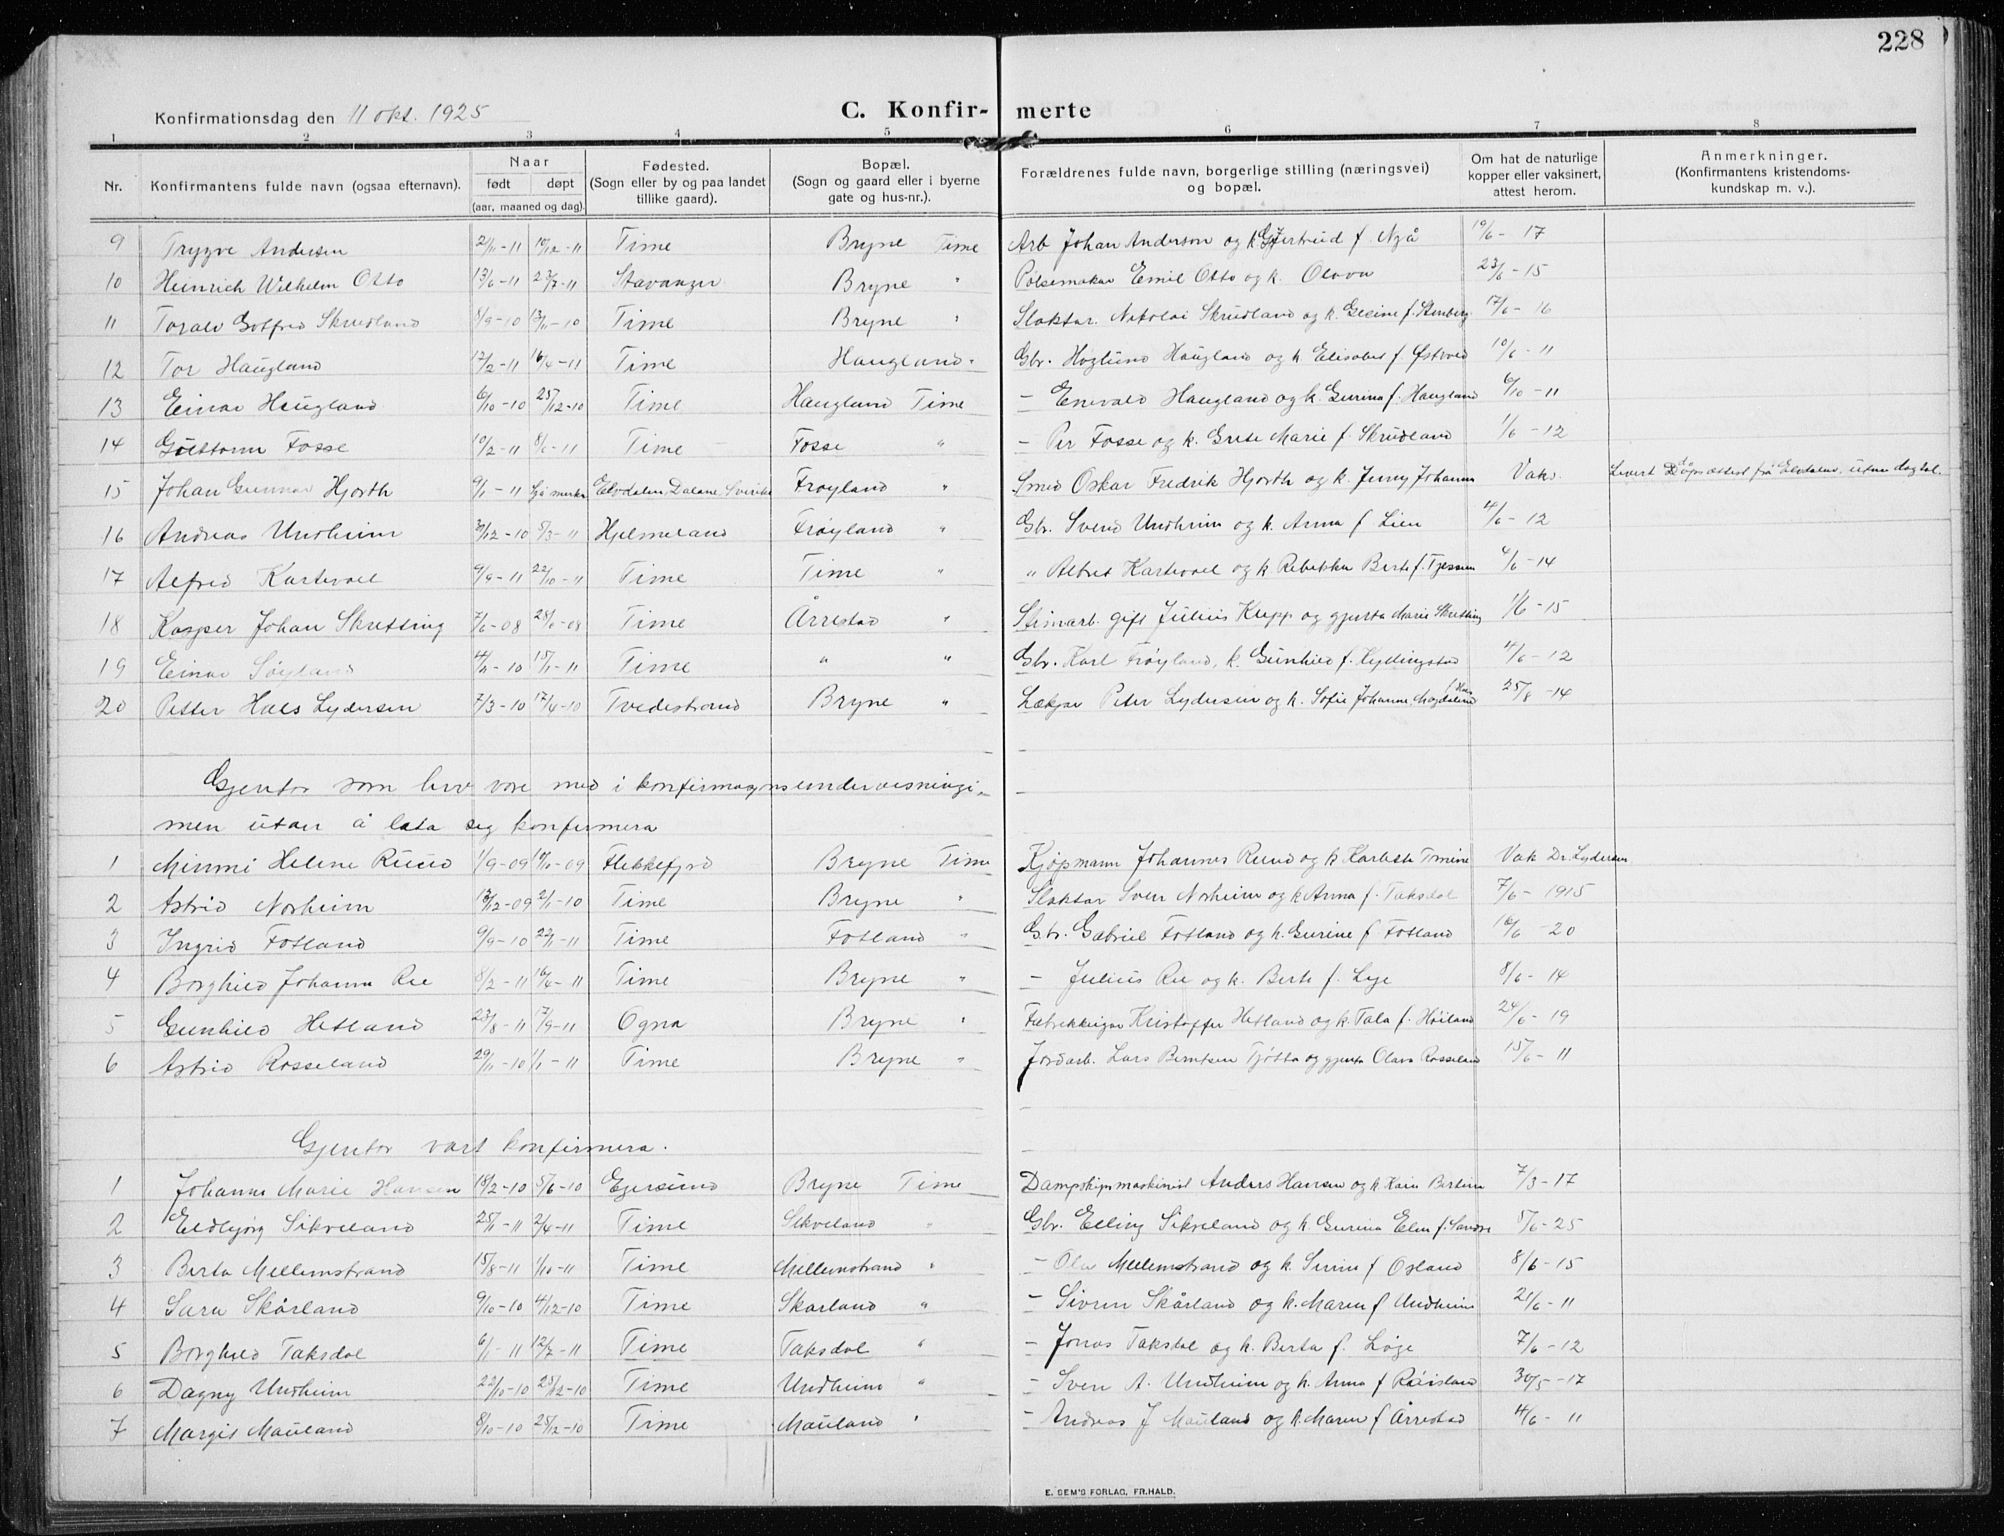 228
Konfirmationsdag den 11 okt. 1925
C. Konfirmerte
1 2 3 4 5 6 7 8
Nr. Konfirmantens fulde navn (ogsaa efternavn). Naar født døpt (aar, maaned og dag). Fødested. (Sogn eller by og paa landet tillike gaard). Bopæl. (Sogn og gaard eller i byerne gate og hus-nr.). Forældrenes fulde navn, borgerlige stilling (næringsvei) og bopæl. Om hat de naturlige kopper eller vaksinert, attest herom. Anmerkninger. (Konfirmantens kristendomskundskap m. v.).
9 Trygve Andersen 2/11-11 10/12-11 Time Bryne Time Arb Johan Anderson og k. Gjertrud f. Ngå 10/6-17
10 Heinrich Wilhelm Otto 13/6-11 23/7-11 Stavanger Bryne " Pølsemakar Emil Otto og k. Olava 23/6-15
11 Toralv Gotfred Skrudland 8/9-10 13/11-10 Time Bryne " Slaktar. Nikolai Skrudland og k. Gesine f. Stenberg 17/6-16
12 Tor Haugland 17/2-11 16/4-11 Time Haugland " Gbr. Høglund Haugland og k Elisabet f. Østvold 10/6-11
13 Einar Haugland 6/10-10 25/12-10 Time Haugland Time - Enevald Haugland og k. Gurina f. Haugland 6/10-11
14 Guttorm Fosse 10/2-11 8/1-11 Time Fosse " - Per Fosse og k. Grete Marie f. Skrudland 1/6-12
15 Johan Gunnar Hjorth 9/1-11 Sjå merkn Elvdalen, Dalane, Sverike Frøyland " Smed Oskar Fredrik Hjorth og k. Jenny Johanna Vak. Levert Dåpsattest frå Elvdalen, utan dagtal.
16 Andreas Undheim 30/12-10 5/3-11 Hjelmeland Frøyland " Gbr. Svend Undheim og k. Anna f Lien 4/6-12
17 Alfred Kartevoll 9/9-11 22/10-11 Time Time " " Albret Kartevoll og k Rebekka Berte f. Tjessem 4/6-14
18 Kasper Johan Skretting 7/6-08 28/6-08 Time Årrestad " Stimarb. gift Julius Kupp og gjenta Marie Skretting 1/6-15
19 Einar Søyland 4/11-10 15/1-11 Time " " Gbr. Karl Frøyland, k. Gunhild f. Kydlingstad 4/6-12
20 Petter Haes Lydersen 7/3-10 17/4-10 Tvedestrand Bryne " Lækjar Peter Lydersen og k. Sofie Johanne Magdalene f. Haes 25/8-14
Gjentor som hev vore med i konfirmasjonsundervisningi,
men utan å lata seg konfirmera
1 Mimmi Helene Ruud 1/9-09 10/10-09 Flekkefjord Bryne Time Kjøpmann Johannes Ruud og k. Karlete Tmine Vak Dr. Lydersen
2 Astrid Norheim 13/12-09 2/1-10 Time Bryne " Slaktar Sven Norheim og k. Anna f. Taksdal 7/6-1915
3 Ingrid Fotland 9/9-10 22/1-11 Time Fotland " Gbr. Gabriel Fotland og k. Gurine f Fotland 16/6-20
4 Borghild Johanna Ree 8/2-11 16/4-11 Time Bryne " - Julius Ree og k. Berte f. Lye 8/6-14
5 Gunhild Hetland 23/8-11 17/9-11 Ogna Bryne " Fabrikkeigar Kristoffer Hetland og k. Tala f. Høiland 24/6-19
6 Astrid Rosseland 29/11-10 1/1-11 Time Bryne " Jordarb. Lars Berntsen Tjøtta og gjenta Olava Rosseland 15/6-11
Gjentor vart konfirmera.
1 Johanna Marie Hansen 18/2-10 5/6-10 Egersund Bryne Time Dampskipsmaskinist Anders Hansen og k. Karin Bertine 7/3-17
2 Eldbjørg Sikveland 25/1-11 2/4-11 Time Sikveland " Gbr. Elling Sikveland og k Gurina Elen f. Sandve 5/6-25
3 Berta Mellemstrand 15/8-11 1/10-11 Time Mellemstrand " - Ola Mellemstrand og k. Sirine f Osland 8/6-15
4 Sara Skårland 9/10-10 4/12-10 Time Skårland " - Sivren Skårland og k. Maren f Undheim 21/6-11
5 Borghild Taksdal 6/1-11 12/2-11 Time Taksdal " - Jonas Taksdal og k. Berta f. Løge 7/6-12
6 Dagny Undheim 22/10-10 25/12-10 Time Undheim " - Sven A. Undheim og k. Anna f Røisland 30/5-17
7 Margit Mauland 8/10-10 25/12-10 Time Mauland " - Andreas J Mauland og k. Maren f Årrestad 4/6-11
E. SEM'S FORLAG, FR.HALD.